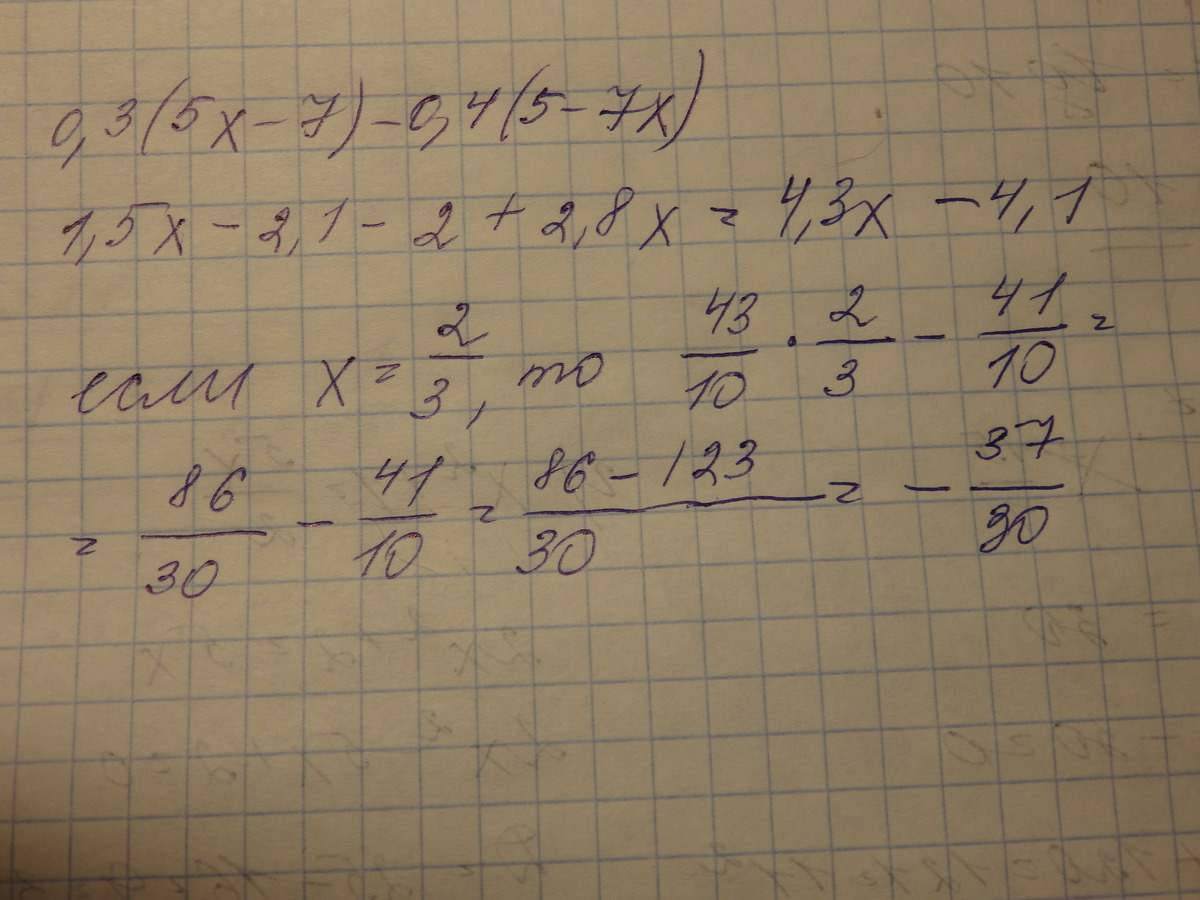 0,3(5x-7)-0,4(5-7x)
1,5x-2,1-2+2,8x=4,3x-4,1
если x=2/3, то 43/10·2/3-41/10=
=86/30-41/10=(86-123)/30=-37/30